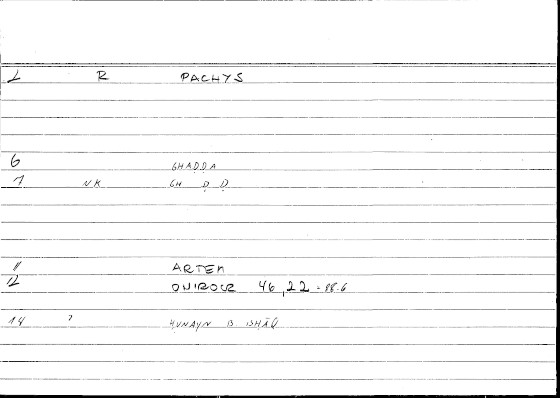 1 R PACHYS
6 GHADDA
7 NK GH Ḍ Ḍ
11 ARTEM
12 ONIROCR 46,22 - 88.6
14 ? ḤUNAYN B ISḤĀQ